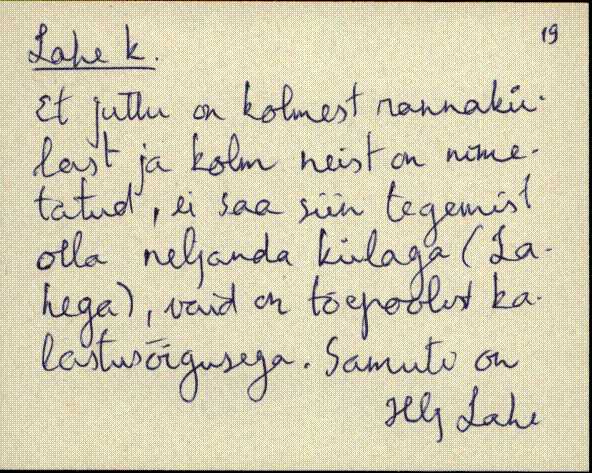 19
Lahe k.
Et juttu on kolmest rannakü-
last ja kolm neist on nime-
tatud, ei saa siin tegemist
olla neljanda külaga (La-
hega), vaid on tõepoolest ka-
lastusõigusega. Samuti on
Lahe